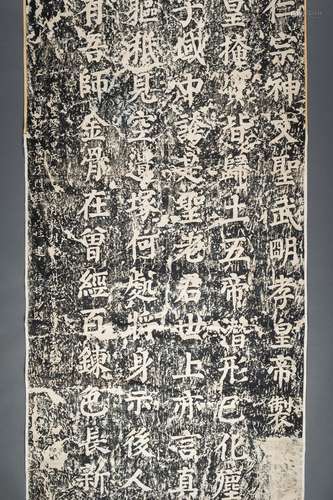 仁宗神文聖武明孝皇帝製
皇掩質皆歸土五帝潛形已化塵
子域中誇是聖老君世上亦言真
軀秖見空遺塚何處將身示後人
有吾師金骨在曾經百鍊色長新